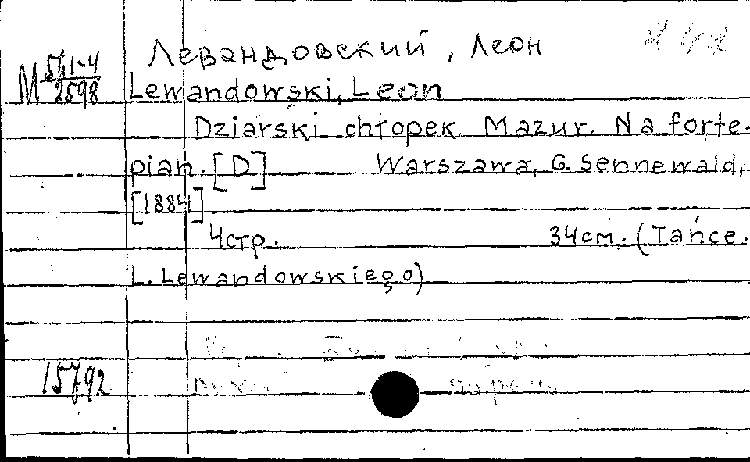 Левандовский, Леон
М 571-4
2598
Lewandowski, Leon
Dziarski chłopek Mazur. Na forte-
pian. [D] Warszawa, G. Sennewald,
[1884]
4стр. 34см. (Tańce.
L. Lewandowskiego)
15792